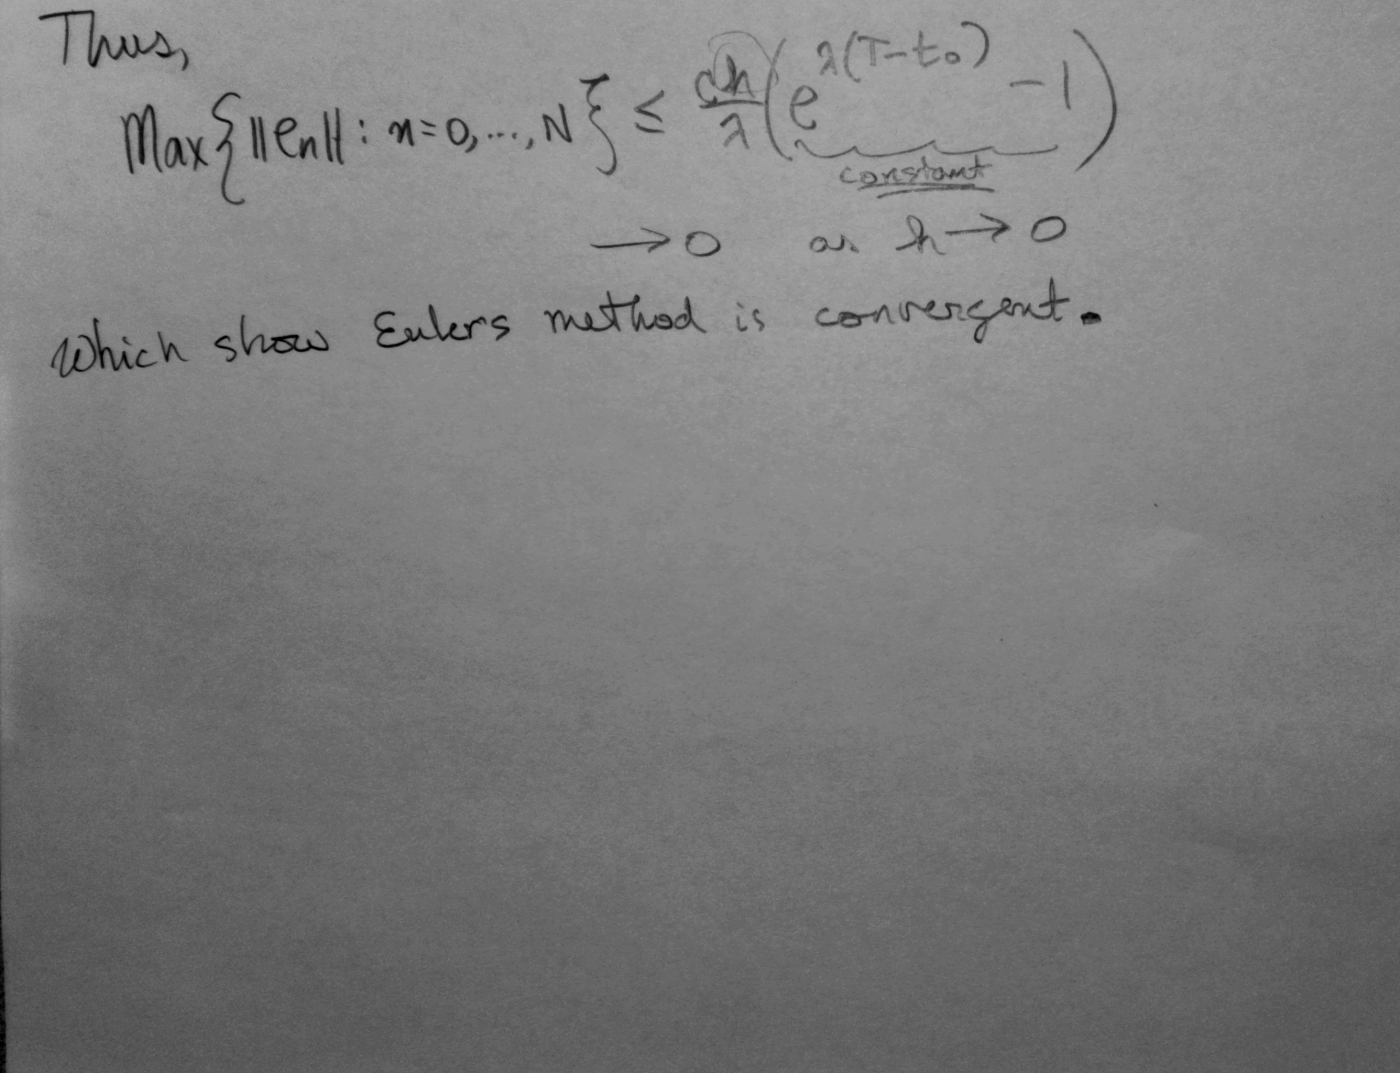 Thus,
Max{||en||: n=0,...,N} ≤ ch/λ (e^λ(T-t₀) -1)
constant
→0 as h→0
which show Eulers method is convergent.